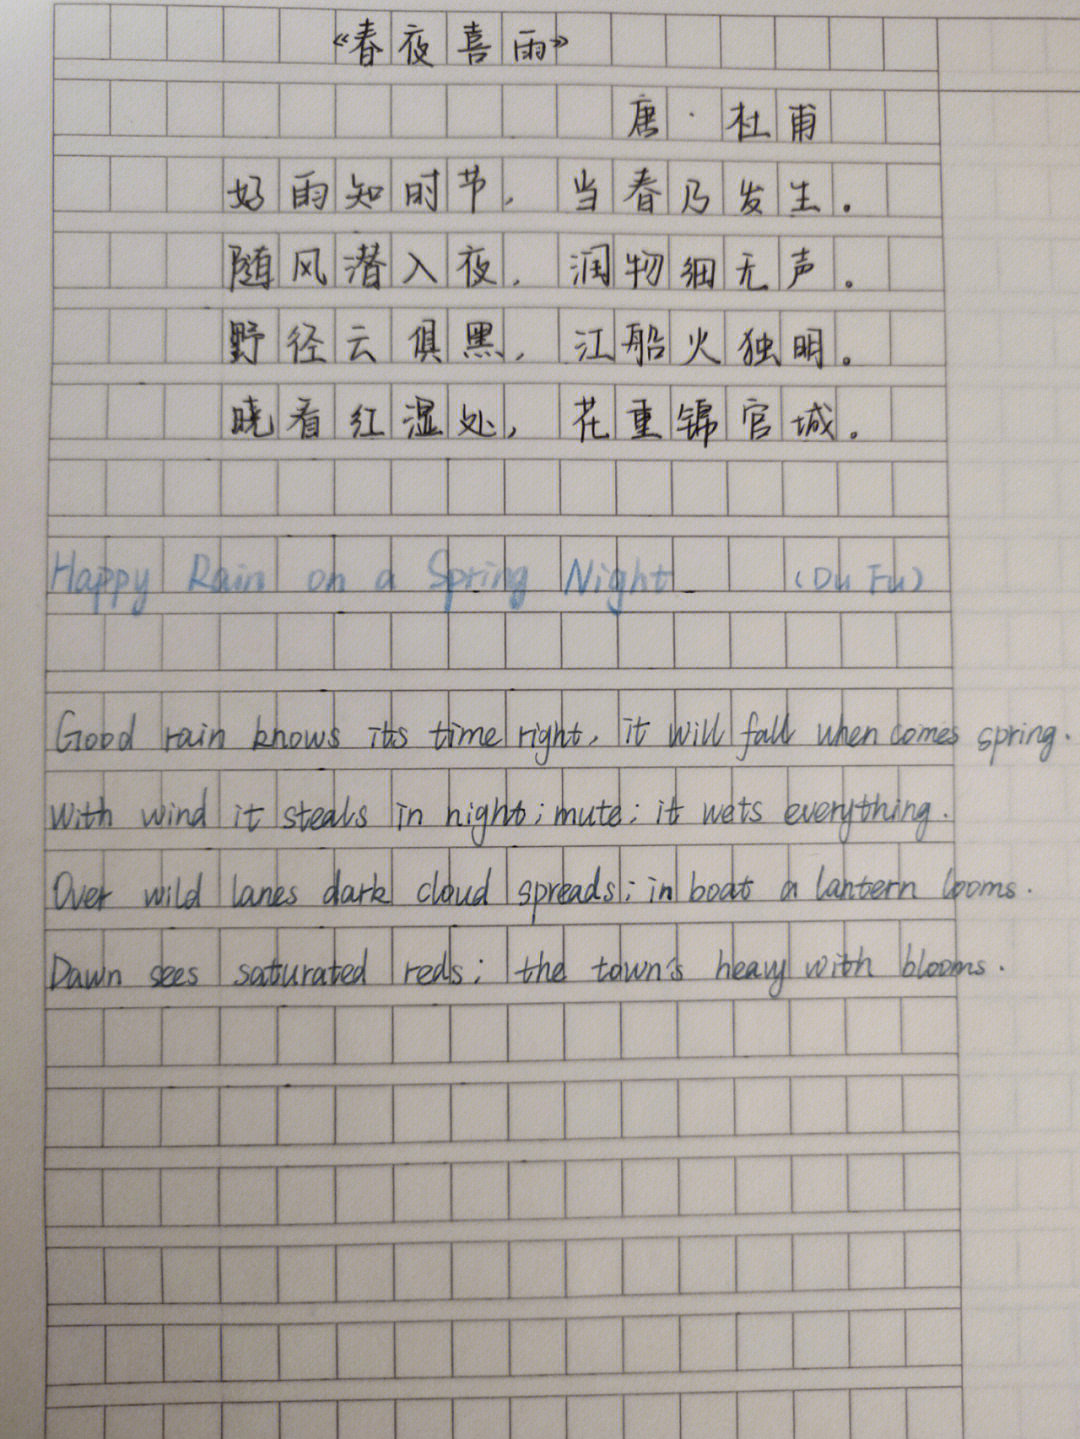 《春夜喜雨》
唐·杜甫
好雨知时节，当春乃发生。
随风潜入夜，润物细无声。
野径云俱黑，江船火独明。
晓看红湿处，花重锦官城。
Happy Rain on a Spring Night (Du Fu)
Good rain knows its time right, it will fall when comes spring.
With wind it steals in night; mute; it wets everything.
Over wild lanes dark cloud spreads; in boat a lantern looms.
Dawn sees saturated reds; the town's heavy with blooms.